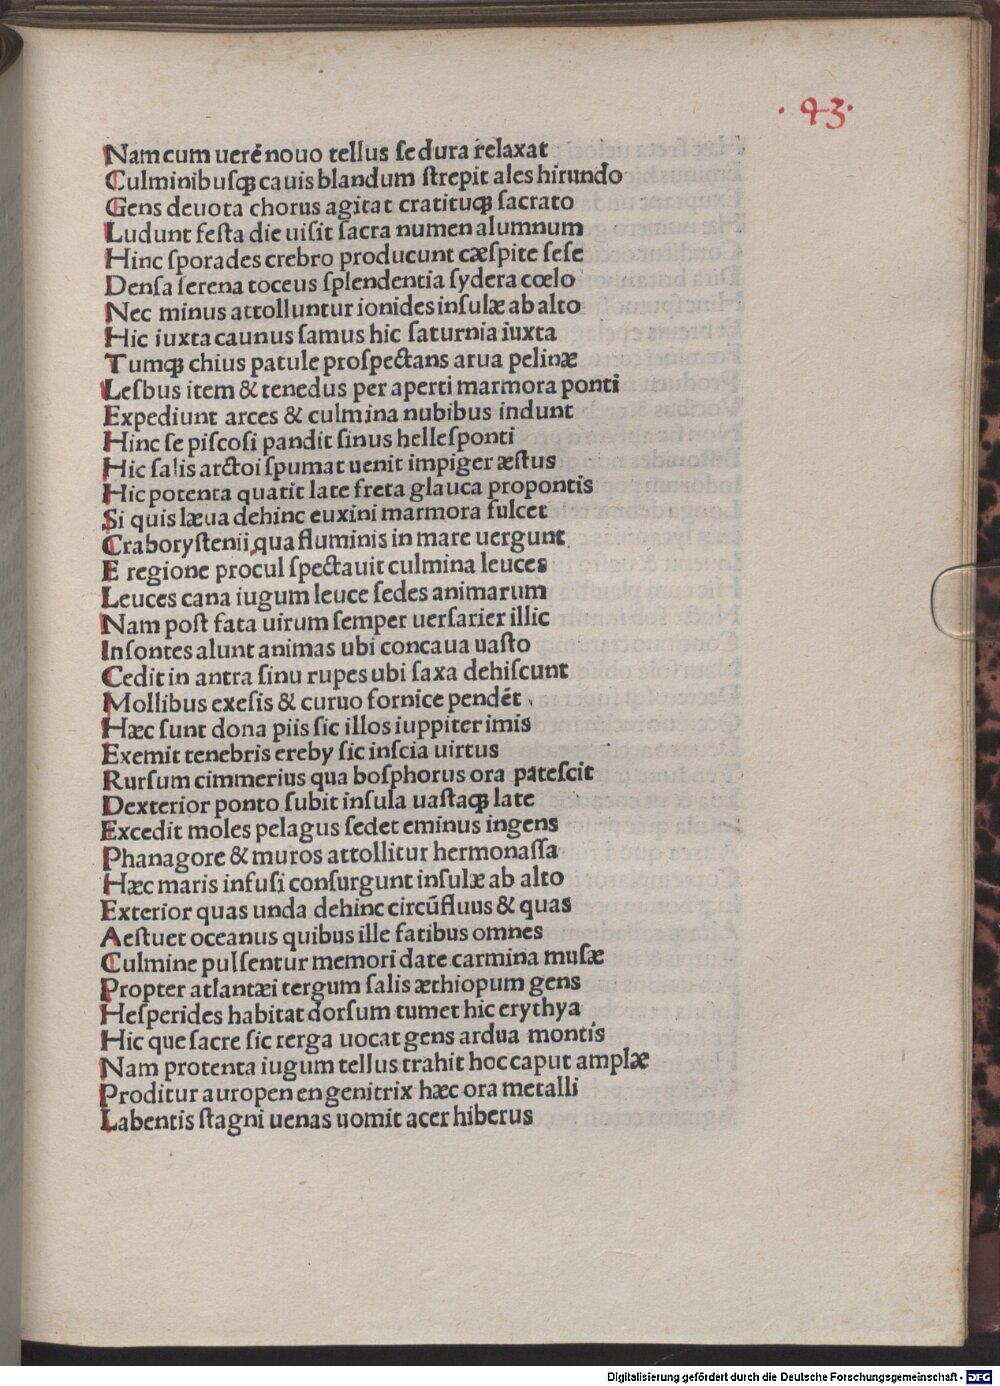 .93.
Nam cum uere nouo tellus se dura relaxat
Culminibusꝗ cauis blandum strepit ales hirundo
Gens deuota chorus agitat cratituꝗ sacrato
Ludunt festa die uisit sacra numen alumnum
Hinc sporades crebro producunt cæspite sese
Densa serena toceus splendentia sydera cœlo
Nec minus attolluntur ionides insulæ ab alto
Hic iuxta caunus samus hic saturnia iuxta
Tumꝗ chius patule prospectans arua pelinæ
Lesbus item & tenedus per aperti marmora ponti
Expediunt arces & culmina nubibus indunt
Hinc se piscosi pandit sinus hellesponti
Hic salis arctoi spumat uenit impiger æstus
Hic potenta quatit late freta glauca propontis
Si quis læua dehinc euxini marmora fulcet
Craborystenii qua fluminis in mare uergunt
E regione procul spectauit culmina leuces
Leuces cana iugum leuce sedes animarum
Nam post fata uirum semper uersarier illic
Insontes alunt animas ubi concaua uasto
Cedit in antra sinu rupes ubi saxa dehiscunt
Mollibus exesis & curuo fornice pendēt
Hæc sunt dona piis sic illos iuppiter imis
Exemit tenebris ereby sic inscia uirtus
Rursum cimmerius qua bosphorus ora patescit
Dexterior ponto subit insula uastaꝗ late
Excedit moles pelagus sedet eminus ingens
Phanagore & muros attollitur hermonassa
Hæc maris infusi consurgunt insulæ ab alto
Exterior quas unda dehinc circūfluus & quas
Aestuet oceanus quibus ille fatibus omnes
Culmine pulsentur memori date carmina musæ
Propter atlantæi tergum salis æthiopum gens
Hesperides habitat dorsum tumet hic erythya
Hic que sacre sic terga uocat gens ardua montis
Nam protenta iugum tellus trahit hoc caput amplæ
Proditur auropen en genitrix hæc ora metalli
Labentis stagni uenas uomit acer hiberus
Digitalisierung gefördert durch die Deutsche Forschungsgemeinschaft - DFG